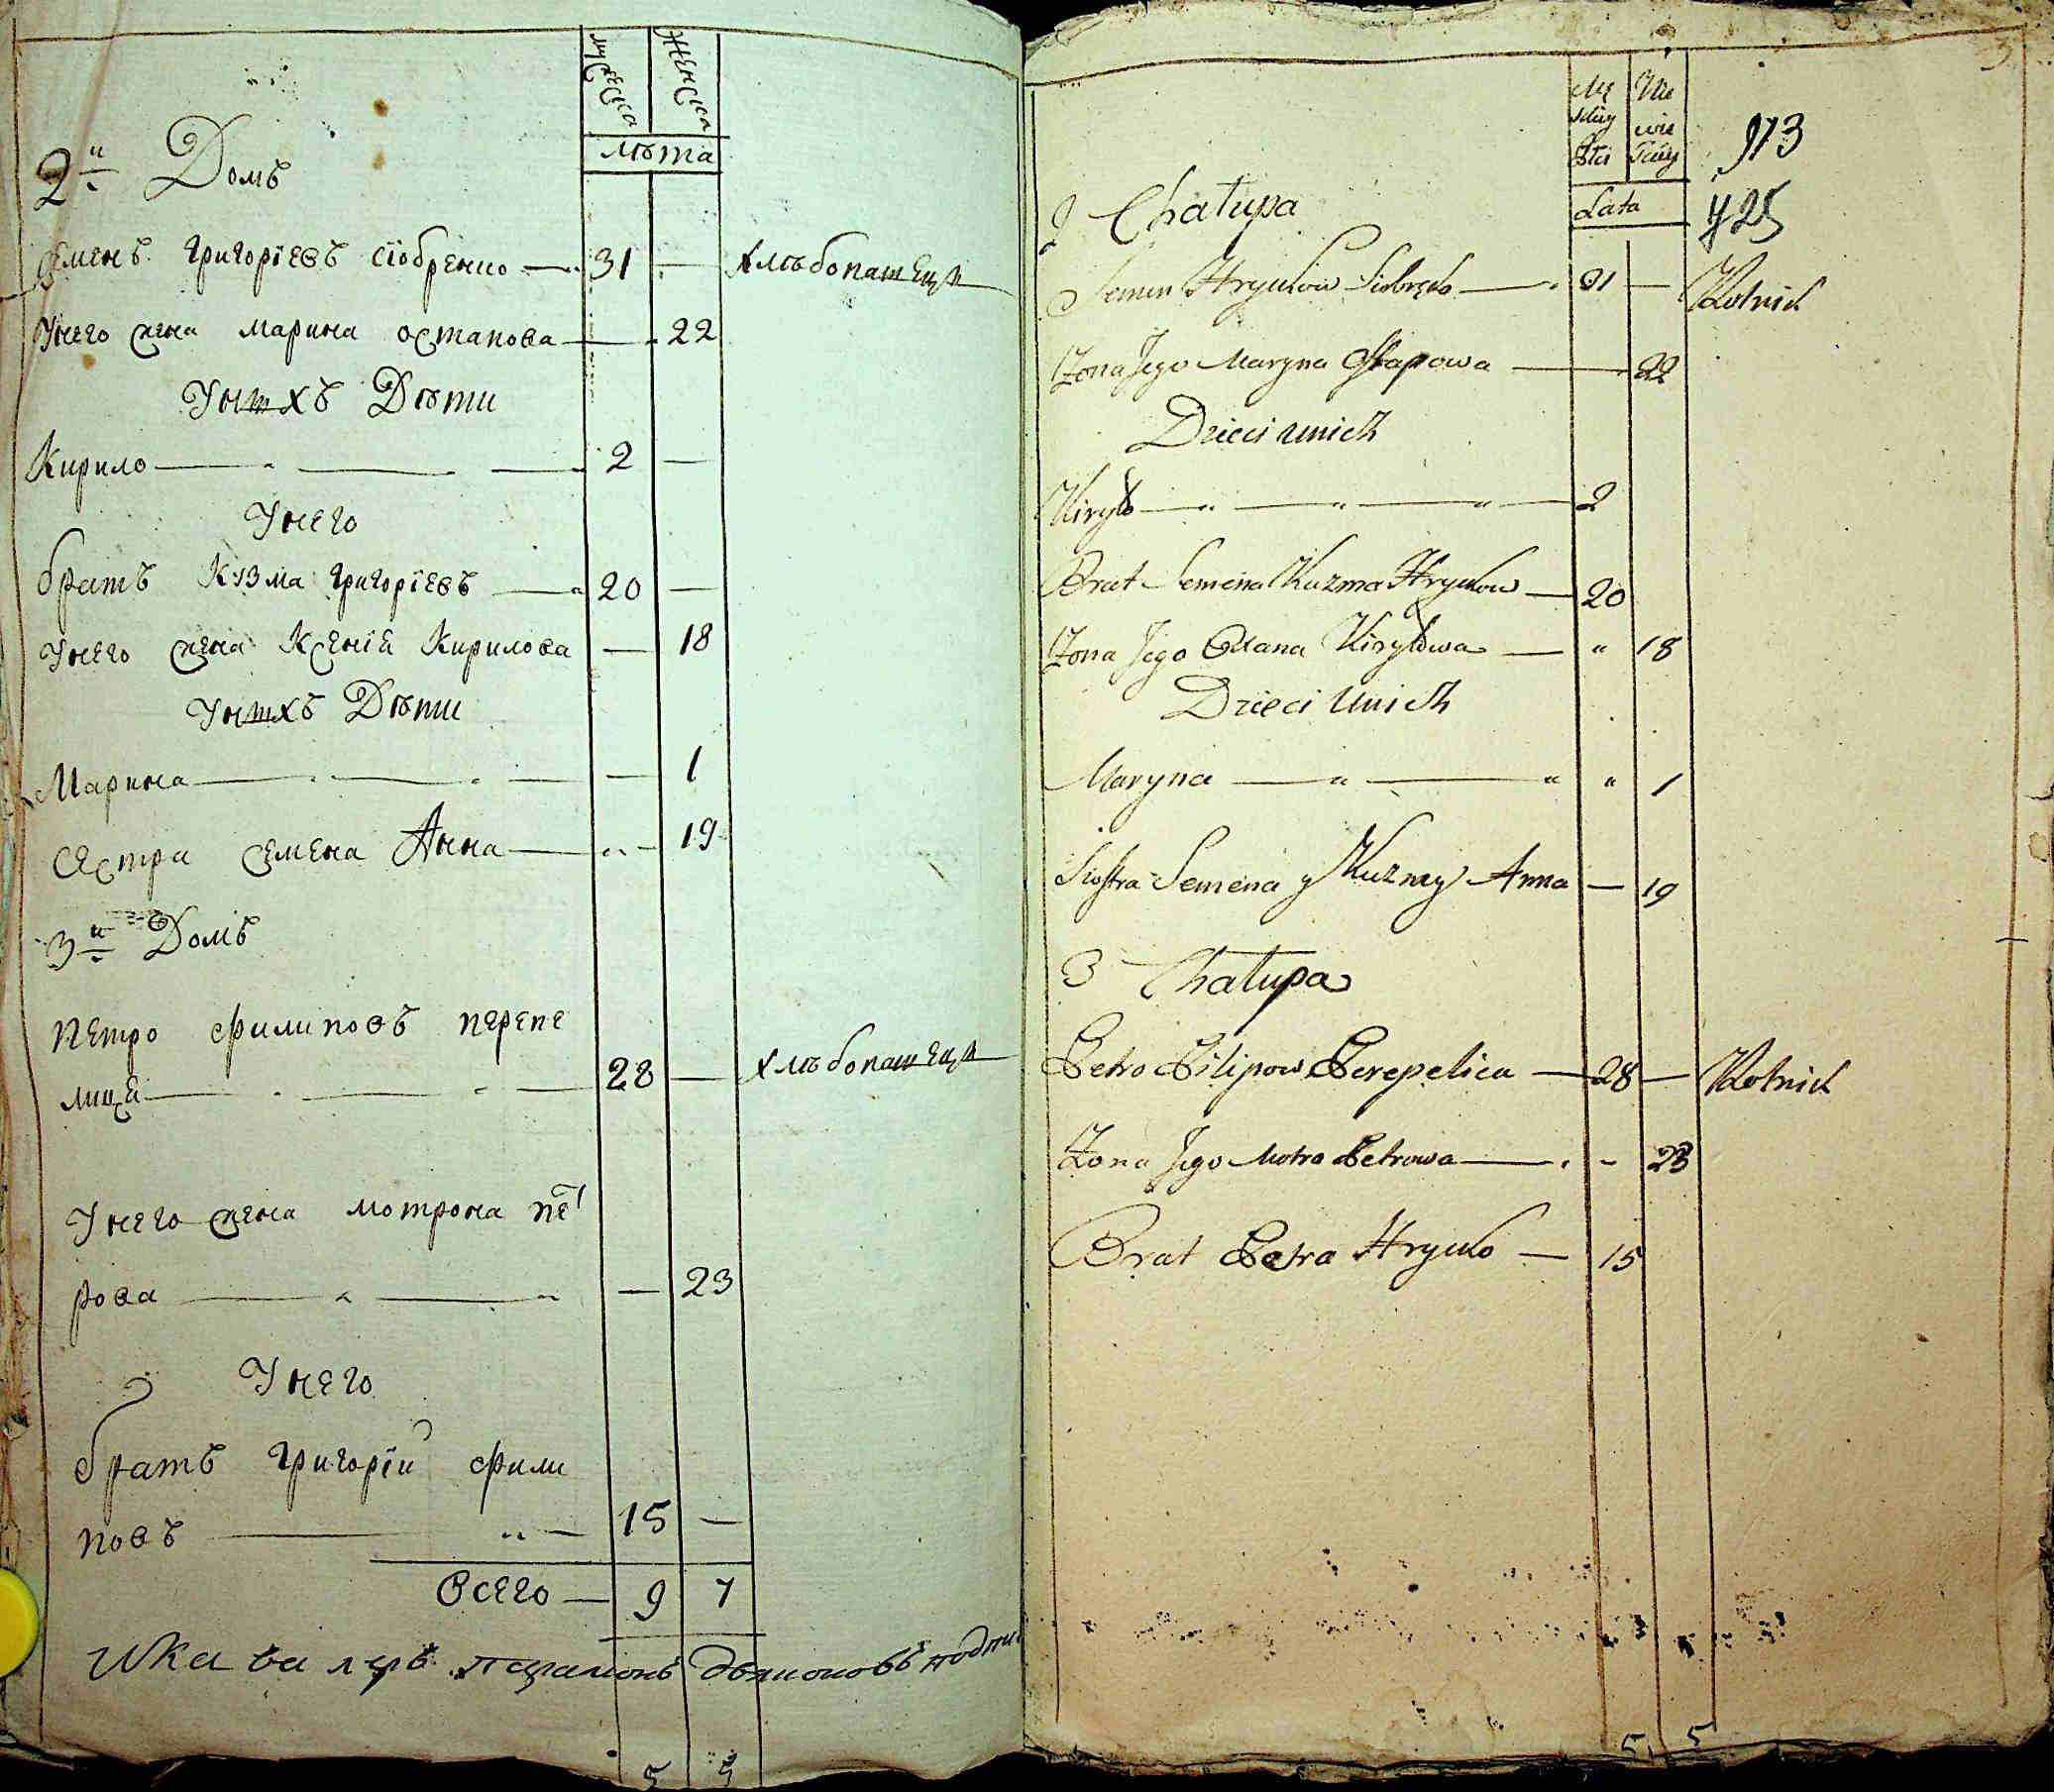 мужеска женска
лѣта
2й Домъ
Семенъ григорїевъ сїобренко 31 — хлѣбопашецъ
Унего жена марина остапова — 22
Унихъ Дѣти
Кирило 2 —
Унего
братъ Кузма григорїевъ 20 —
Унего жена Ксенїя Кирилова — 18
Унихъ Дѣти
Марина — 1
Сестра Семена Анна — 19
3й Домъ
Петро филиповъ перепе
лица 28 — хлѣбопашецъ
Унего жена мотрона пет
рова — 23
Унего
братъ григорїй фили
повъ 15 —
Всего — 9 7
5 5
Męskiy Niewieściy
Lata
973
725
2 Chałupa
Semen Hryńkow Siobrenko 31 — Rolnik
Żona Jego Maryna Ostapowa — 22
Dzieci unich
Kiryło 2
Brat Semena Kuzma Hryńkow — 20
Żona Jego Oxana Kiryłowa — " 18
Dzieci Unich
Maryna — " — " " 1
Siostra Semena y Kuzmy Anna — 19
3 Chałupa
Petro Pilipow Perepelica — 28 — Rolnik
Żona Jego Motra Petrowa — - 23
Brat Petra Hryńko — 15
5 5